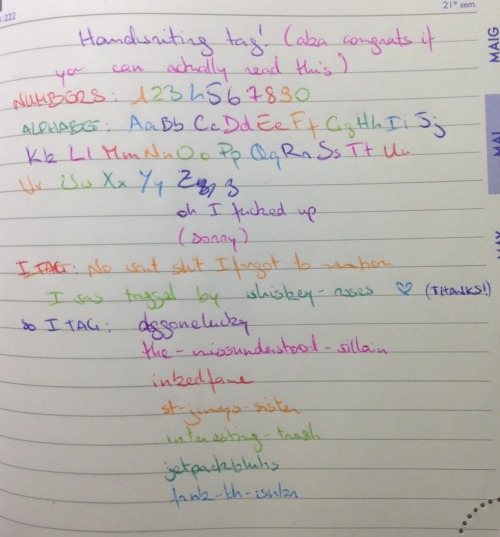 1.222
21ª sem.
Handwriting tag! (aka congrats if
you can actually read this)
NUMBERS: 1 2 3 4 5 6 7 8 9 0
ALPHABET: Aa Bb Cc Dd Ee Ff Gg Hh Ii Jj
Kk Ll Mm Nn Oo Pp Qq Rr Ss Tt Uu
Vv Ww Xx Yy Zz
oh I fucked up
(sorry)
I TAG: No wait shit I forgot to mention
I was tagged by whiskey-roses ♡ (THANKS!)
so I TAG: doggonelucky
the-missunderstood-villain
inkedfame
interesting-trash
MAIG
MAI